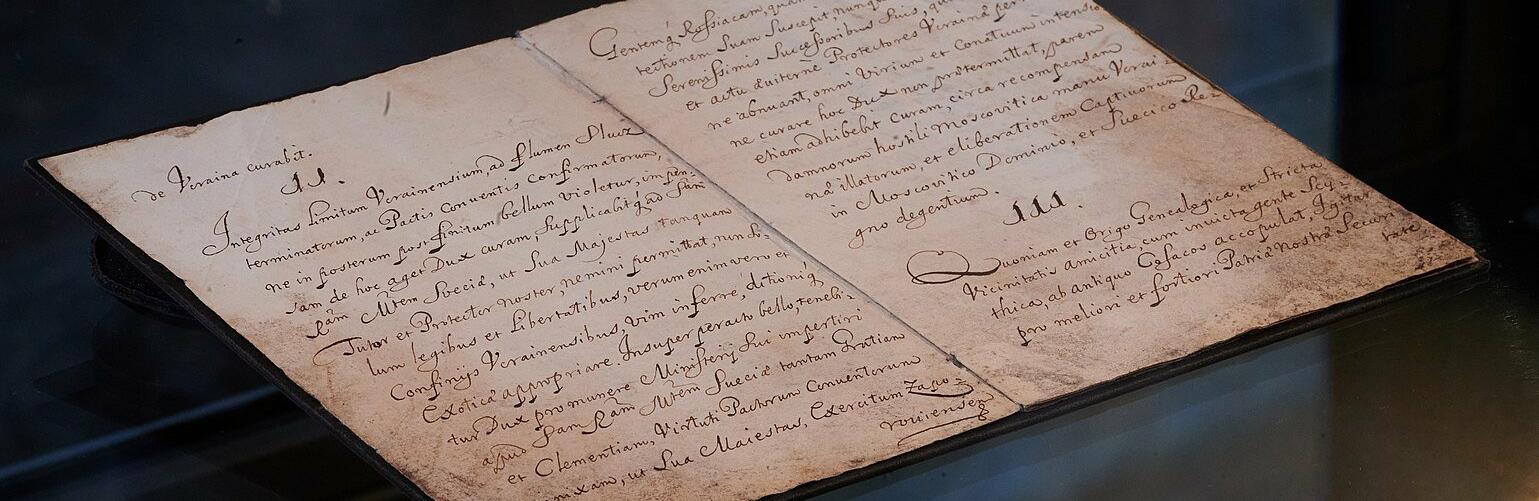 de Ucraina curabit.
II.
Integritas Limitum Ucrainensium, ad flumen Slucz
terminatorum, ac Pactis Conventis confirmatorum,
ne in posterum post finitum bellum violetur, impen-
sam de hoc aget Dux curam, supplicabitq ad Sam
Rām Mtem Sveciæ, ut Sua Majestas tanquam
Tutor et Protector noster, nemini permittat, nun
lum legibus et Libertatibus, verumenimvero et
Confinijs Ucrainensibus, vim inferre, ditioniq
Exoticæ appropriare. Insuper peracto bello, tenebi-
tur Dux pro munere Ministerij sui impertiri
apud Sam Rām Mtem Sueciæ tantam Gratiam
et Clementiam, Virtuti Pactorum Conventorum
nixam, ut Sua Maiestas, Exercitum Zapo-
rouiensem
Gentemq Rossiacam,
tectionem Suam Suscepit, nunqu
Serenissimis Successoribus Suis,
et actu diuternè Protectores Ucrainæ
ne abnuant, omni Virium et Conatuum intensio
ne curare hoc Dux non prætermittat, parem
etiam adhibebit curam, circa recompensam
damnorum hostili Moscovitica manu Ucrai-
næ illatorum, et eliberationem Captivorum
in Moscovitico Dominio, et Suecico Re-
gno degentium.
III.
Quoniam et Origo Genealogica, et Stricta
Vicinitatis amicitia, cum invicta gente Scy-
thica, ab antiquo Cosacos accopulat, Igitur
pro meliori et fortiori Patriæ nostræ Securi
tate